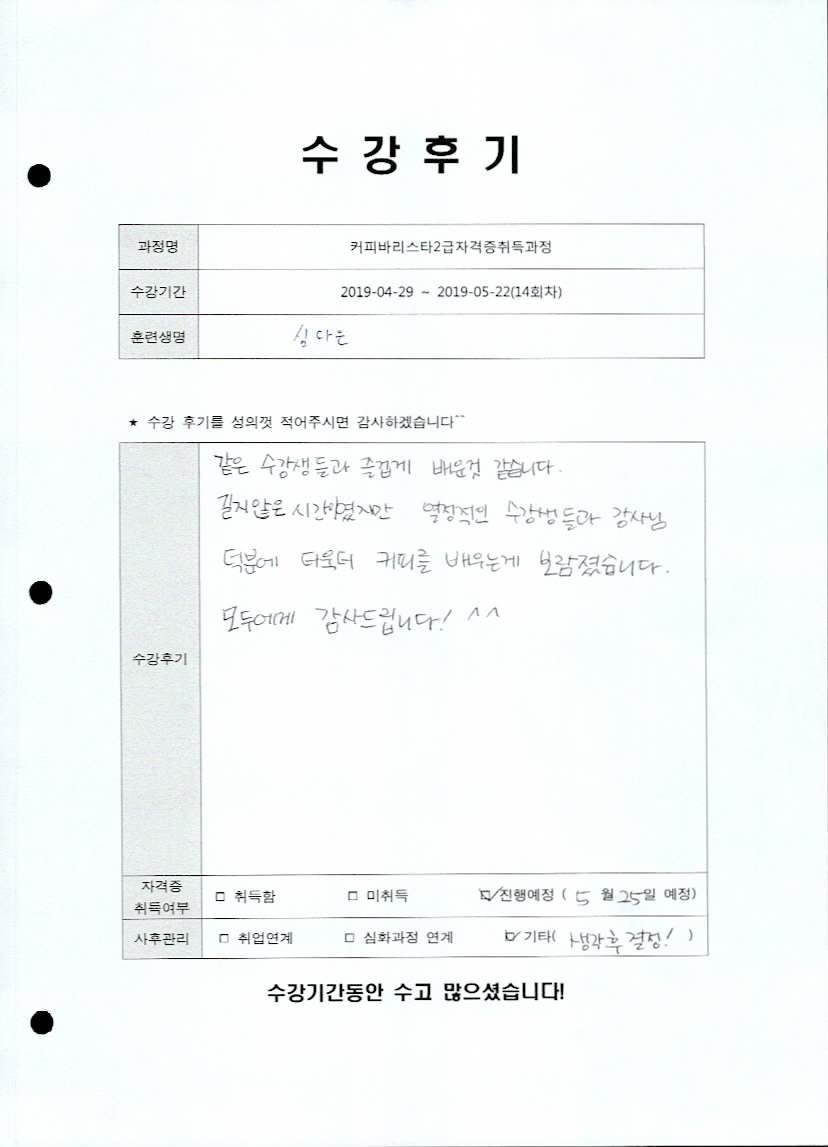 수 강 후 기
과정명 커피바리스타2급자격증취득과정
수강기간 2019-04-29 ~ 2019-05-22(14회차)
훈련생명 심다은
★ 수강 후기를 성의껏 적어주시면 감사하겠습니다^^
같은 수강생들과 즐겁게 배운것 같습니다.
길지않은 시간이였지만 열정적인 수강생들과 강사님
덕분에 더욱더 커피를 배우는게 보람졌습니다.
모두에게 감사드립니다! ^^
수강후기
자격증
취득여부 □ 취득함 □ 미취득 ☑진행예정 ( 5 월 25일 예정)
사후관리 □ 취업연계 □ 심화과정 연계 ☑기타( 생각후결정! )
수강기간동안 수고 많으셨습니다!